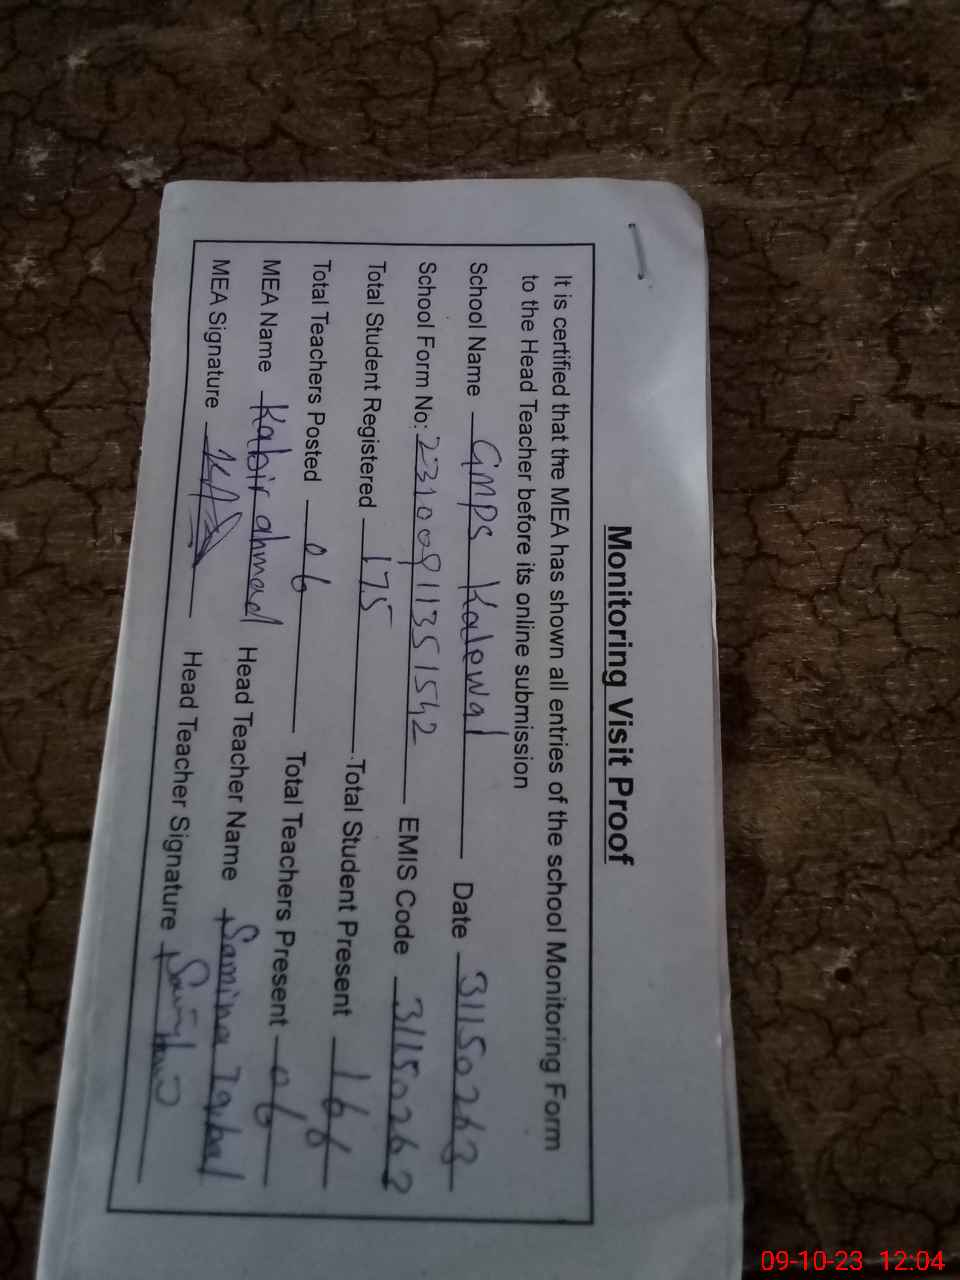 Monitoring Visit Proof
It is certified that the MEA has shown all entries of the school Monitoring Form
to the Head Teacher before its online submission
School Name GMPS Kalewal Date 31150263
School Form No: 23100911351542 EMIS Code 31150263
Total Student Registered 175 Total Student Present 166
Total Teachers Posted 06 Total Teachers Present 06
MEA Name Kabir ahmad Head Teacher Name Samina Iqbal
MEA Signature Head Teacher Signature
09-10-23 12:04